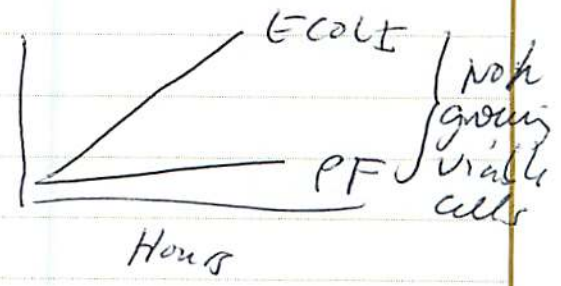 E COLI
PF
non
growing
viable
cells
Hours